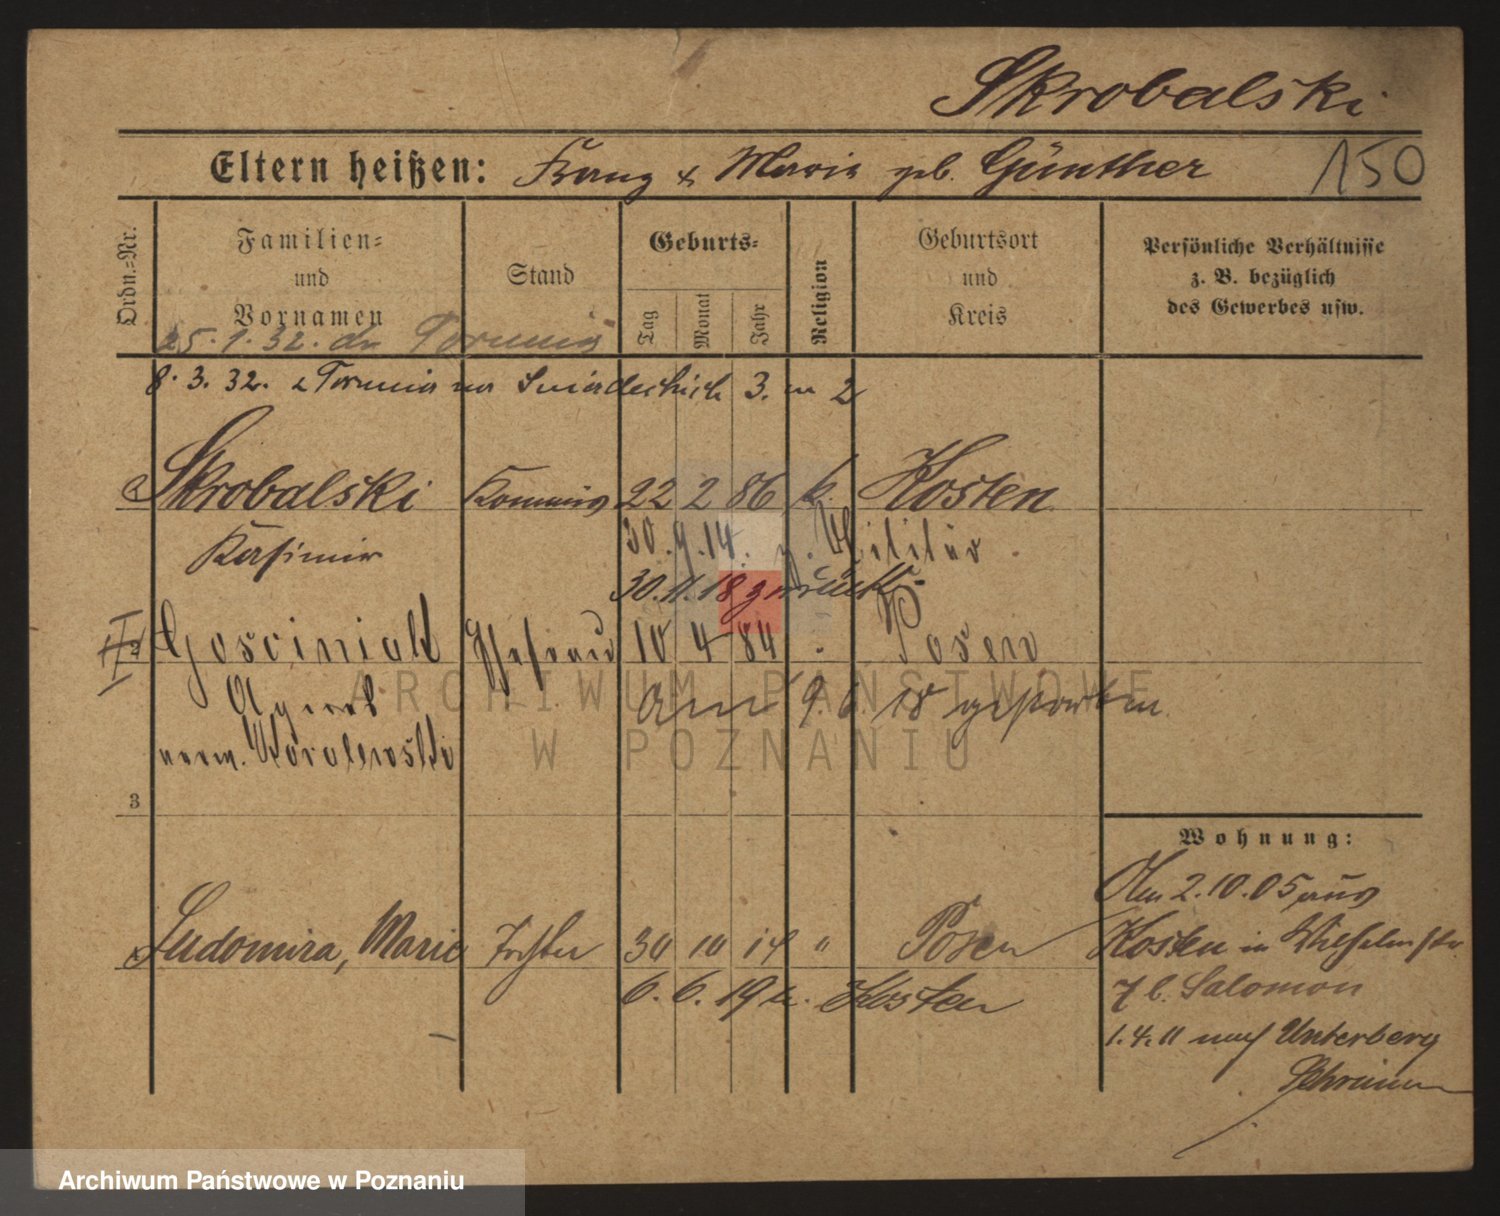 Skrobalski
Eltern heißen: Franz & Maria geb. Günther 150
Ordn.-Nr.
Familien- und Vornamen
Stand
Geburts-
Tag
Monat
Jahr
Religion
Geburtsort und Kreis
Persönliche Verhältnisse
z. B. bezüglich
des Gewerbes usw.
25. 1. 32. do Torunia
8. 3. 32. z Torunia na Śniadeckich 3. m 2
Skrobalski Kommis 22 2 86 k. Kosten
Kasimir
30. 9. 14. z. Militär
30. 11. 18 zurück
Gościniak Ehefrau 10 4 84 Posen
Agnes
am 9. 6. 18 gestorben
verw. Woralewski
3
Wohnung:
Ludomira, Marie Tochter 30 10 14 " Posen
6. 6. 19 Kosten
Am 2. 10. 05 aus
Kosten in Wilhelmstr.
7 b. Salomon
1. 4. 11 nach Unterberg
Schrimm
ARCHIWUM PAŃSTWOWE
W POZNANIU
Archiwum Państwowe w Poznaniu